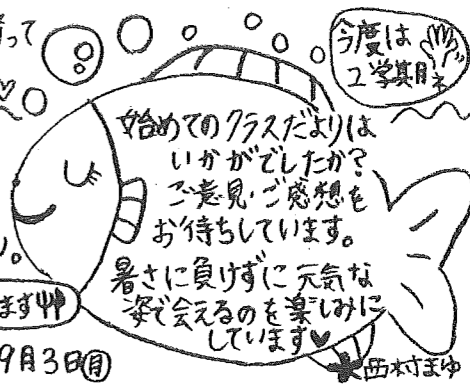 って
今度は
2学期ネ
始めてのクラスだよりは
いかがでしたか?
ご意見・ご感想を
お待ちしています。
暑さに負けずに元気な
姿で会えるのを楽しみに
しています♥
ます
9月3日(月)
西村まゆ